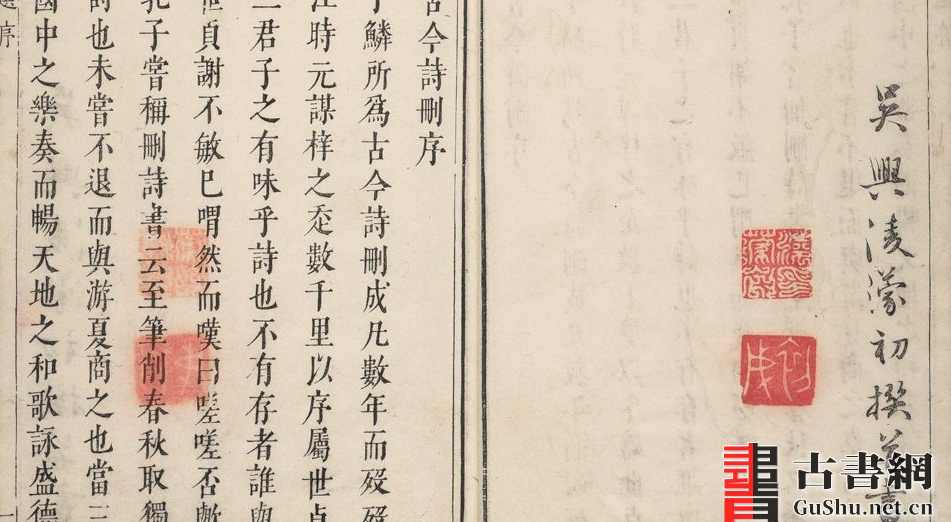 吳興淩濛初撰並書
古今詩刪序
于鱗所爲古今詩刪成凡數年而歿歿
時元謀梓之走數千里以序屬世貞
二君子之有味乎詩也不有存者誰與
世貞謝不敏已喟然而嘆曰嗟嗟否歟
孔子嘗稱刪詩書云至筆削春秋取獨
詩也未嘗不退而與游夏商之也當三
國中之樂奏而暢天地之和歌詠盛德
序
一
古書網
GuShu.net.cn